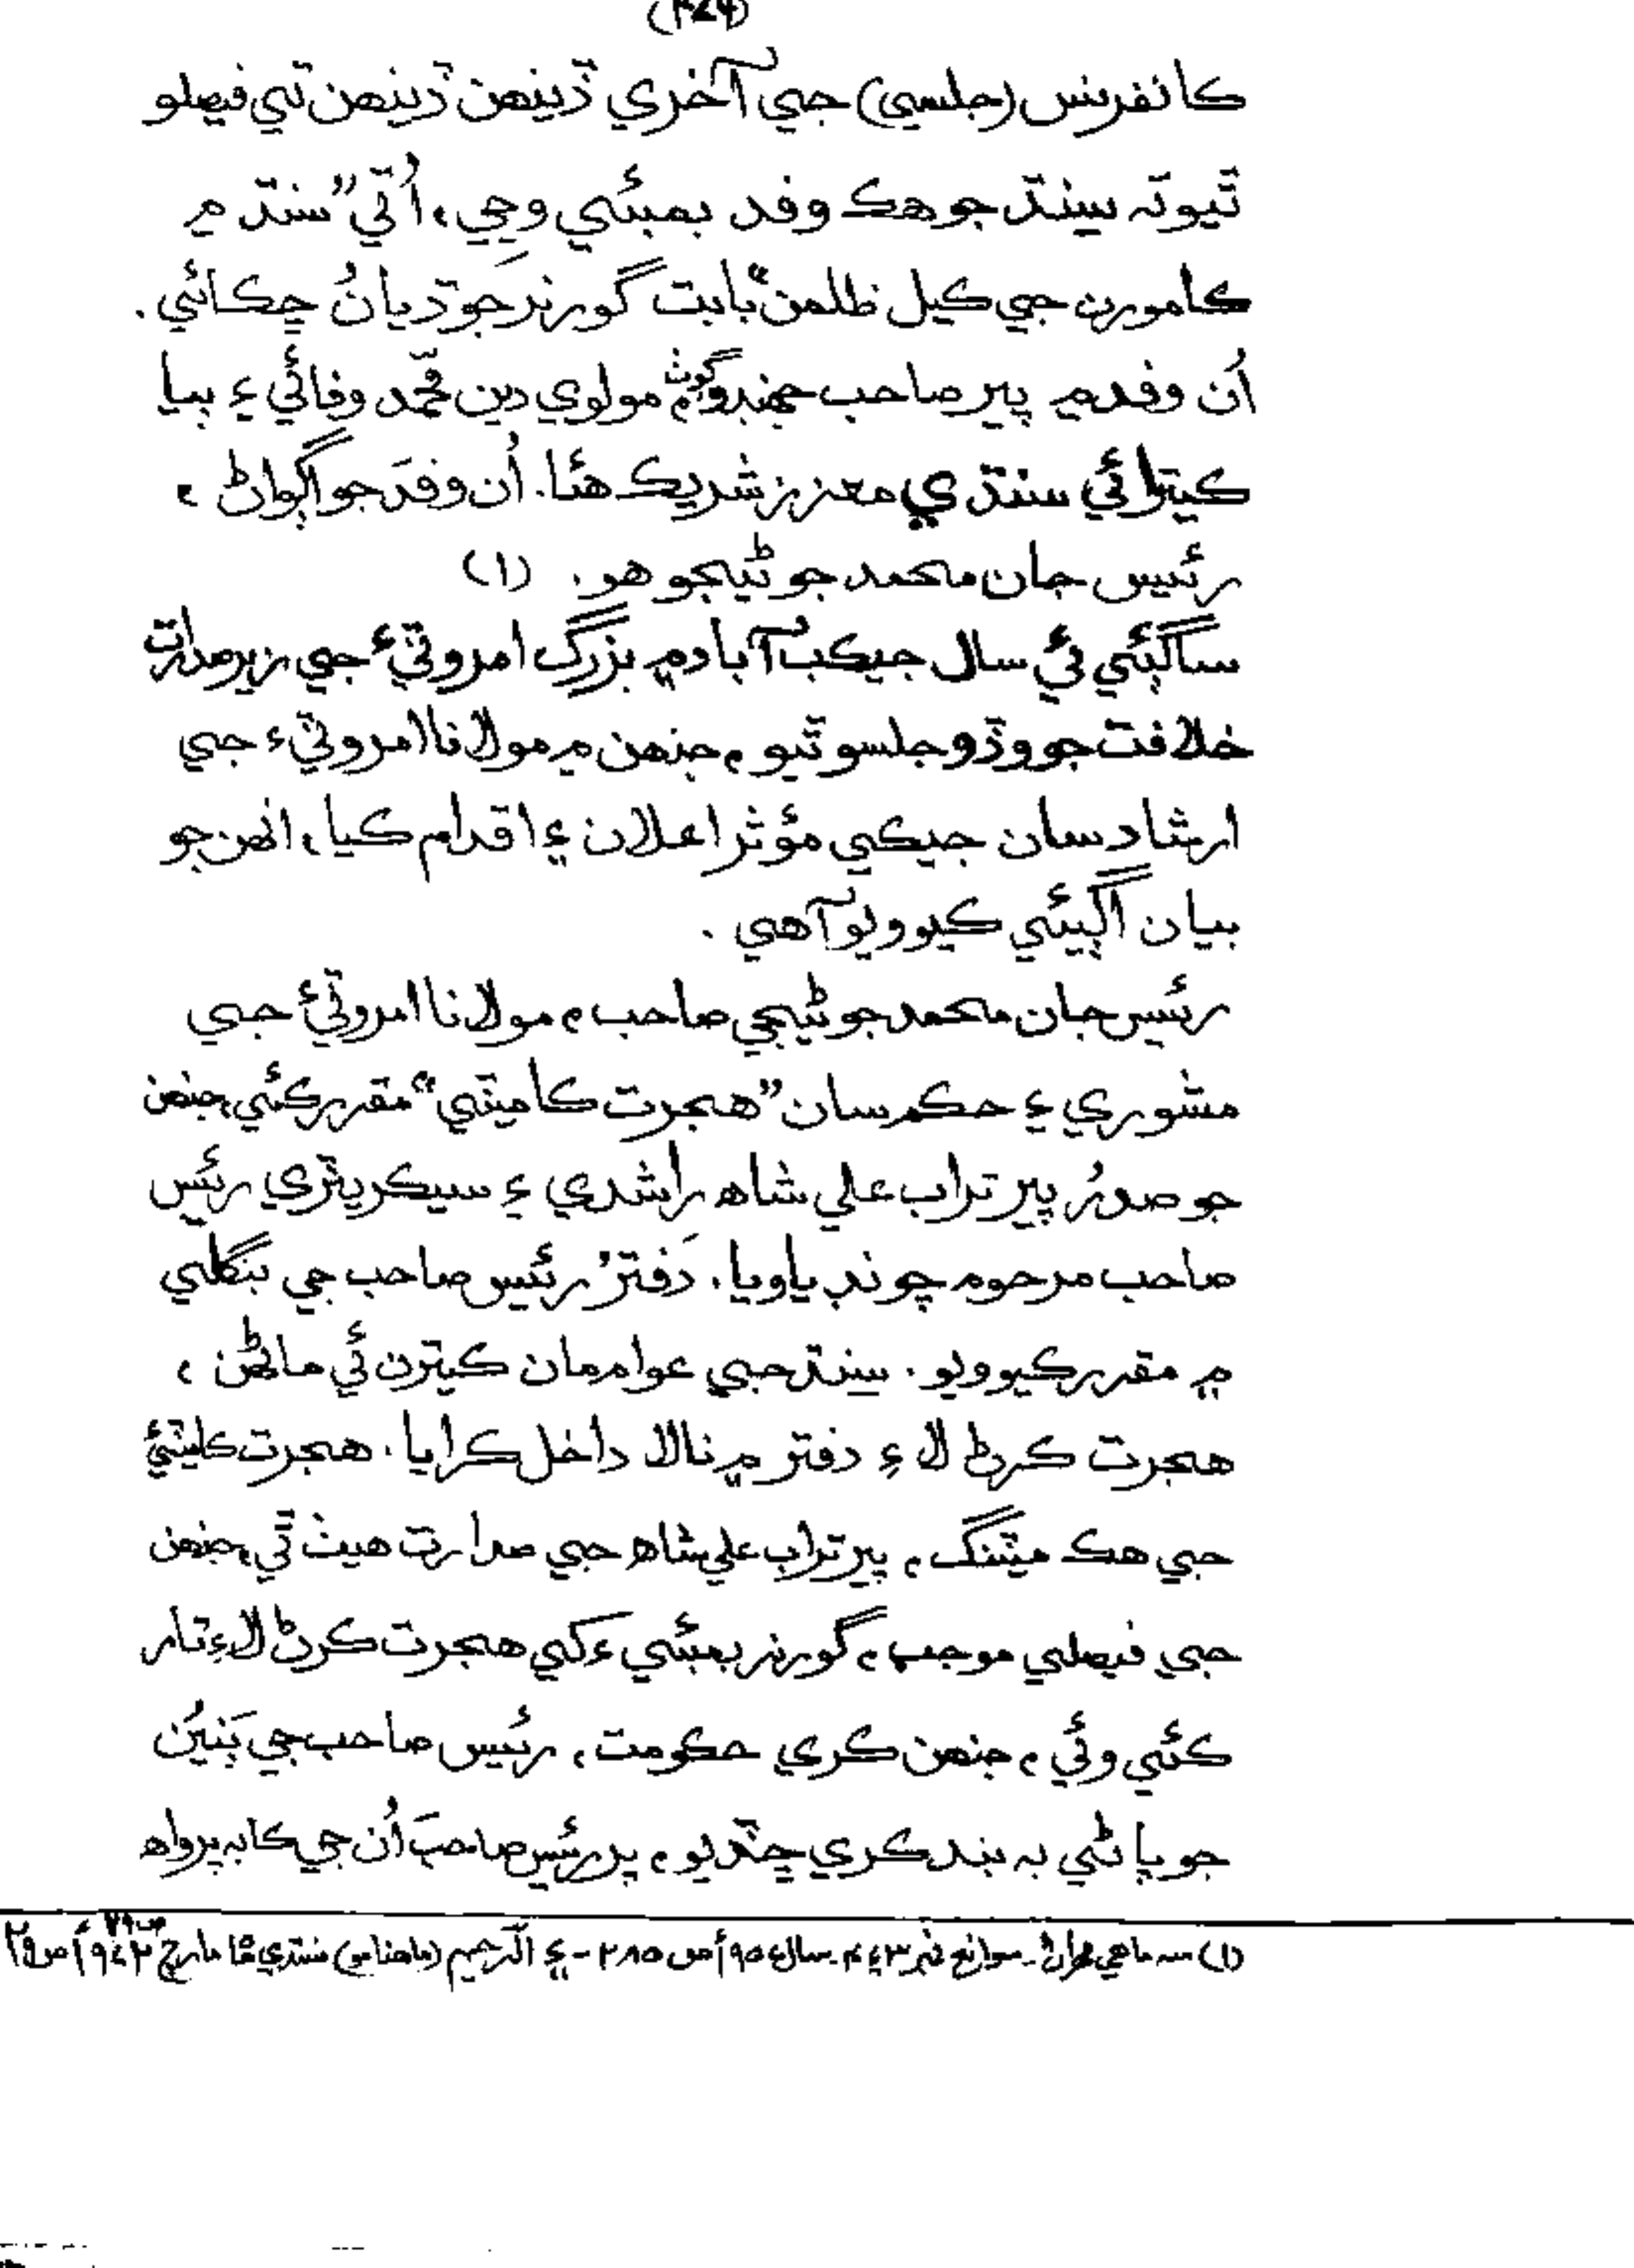 ڪانفرنس (جلسي) جي آخري ڏينهن ڏينهن تي فيصلو
ٿيو تہ سِنڌ جو هڪ وفد بمبئي وڃي، اُتي ”سنڌ ۾
ڪامورن جي ڪيل ظلمن“ بابت گورنر جو ڌيانُ ڇڪائي.
اُن وفد ۾ پير صاحب جهنڊو ڳوٺ، مولوي دين محمّد وفائي ۽ ٻيا
ڪيترائي سنڌي معزز شريڪ هئا. اُن وفدَ جو اڳواڻ،
رئيس جان محمد جوڻيجو هو. (١)
ساڳئي ئي سال جيڪب آباد ۾ بزرگ امروٽيءَ جي زير صدارت
خلافت جو وڏو جلسو ٿيو، جنهن ۾ مولانا امروٽيء جي
ارشاد سان جيڪي مؤثر اعلان ۽ اقدام ڪيا، انهن جو
بيان اڳيئي ڪيو ويو آهي.
رئيس جان محمد جوڻيجي صاحب، مولانا امروٽيءَ جي
مشوري ۽ حڪم سان ”هجرت ڪاميٽي“ مقرر ڪئي، جنهن
جو صدرُ پير تراب علي شاه راشدي ۽ سيڪريٽري رئيس
صاحب مرحوم چونڊيا ويا. دَفترُ رئيس صاحب جي بنگلي
۾ مقرر ڪيو ويو. سِنڌ جي عوام مان ڪيترن ئي ماڻهن،
هجرت ڪرڻ لاءِ دفتر ۾ نالا داخل ڪرايا. هجرت ڪاميٽيءَ
جي هڪ ميٽنگ، پير تراب علي شاه جي صدارت هيٺ ٿي، جنهن
جي فيصلي موجب، گورنر بمبئيءَ کي هجرت ڪرڻ لاءِ تار
ڪئي وئي، جنهن ڪري حڪومت، رئيس صاحب جي ٻَنيُن
جو پاڻي بہ بند ڪري ڇڏيو، پر رئيس صاحبَ اُن جي ڪا بہ پرواه
(١) سہ ماهي مهراڻ۔ سوانح نمبر ٣ ۽ ٤۔ سال ١٩٥٧ع ص ٢٨٥ - ۽ الرحيم (ماهنامو) سنڌي مارچ